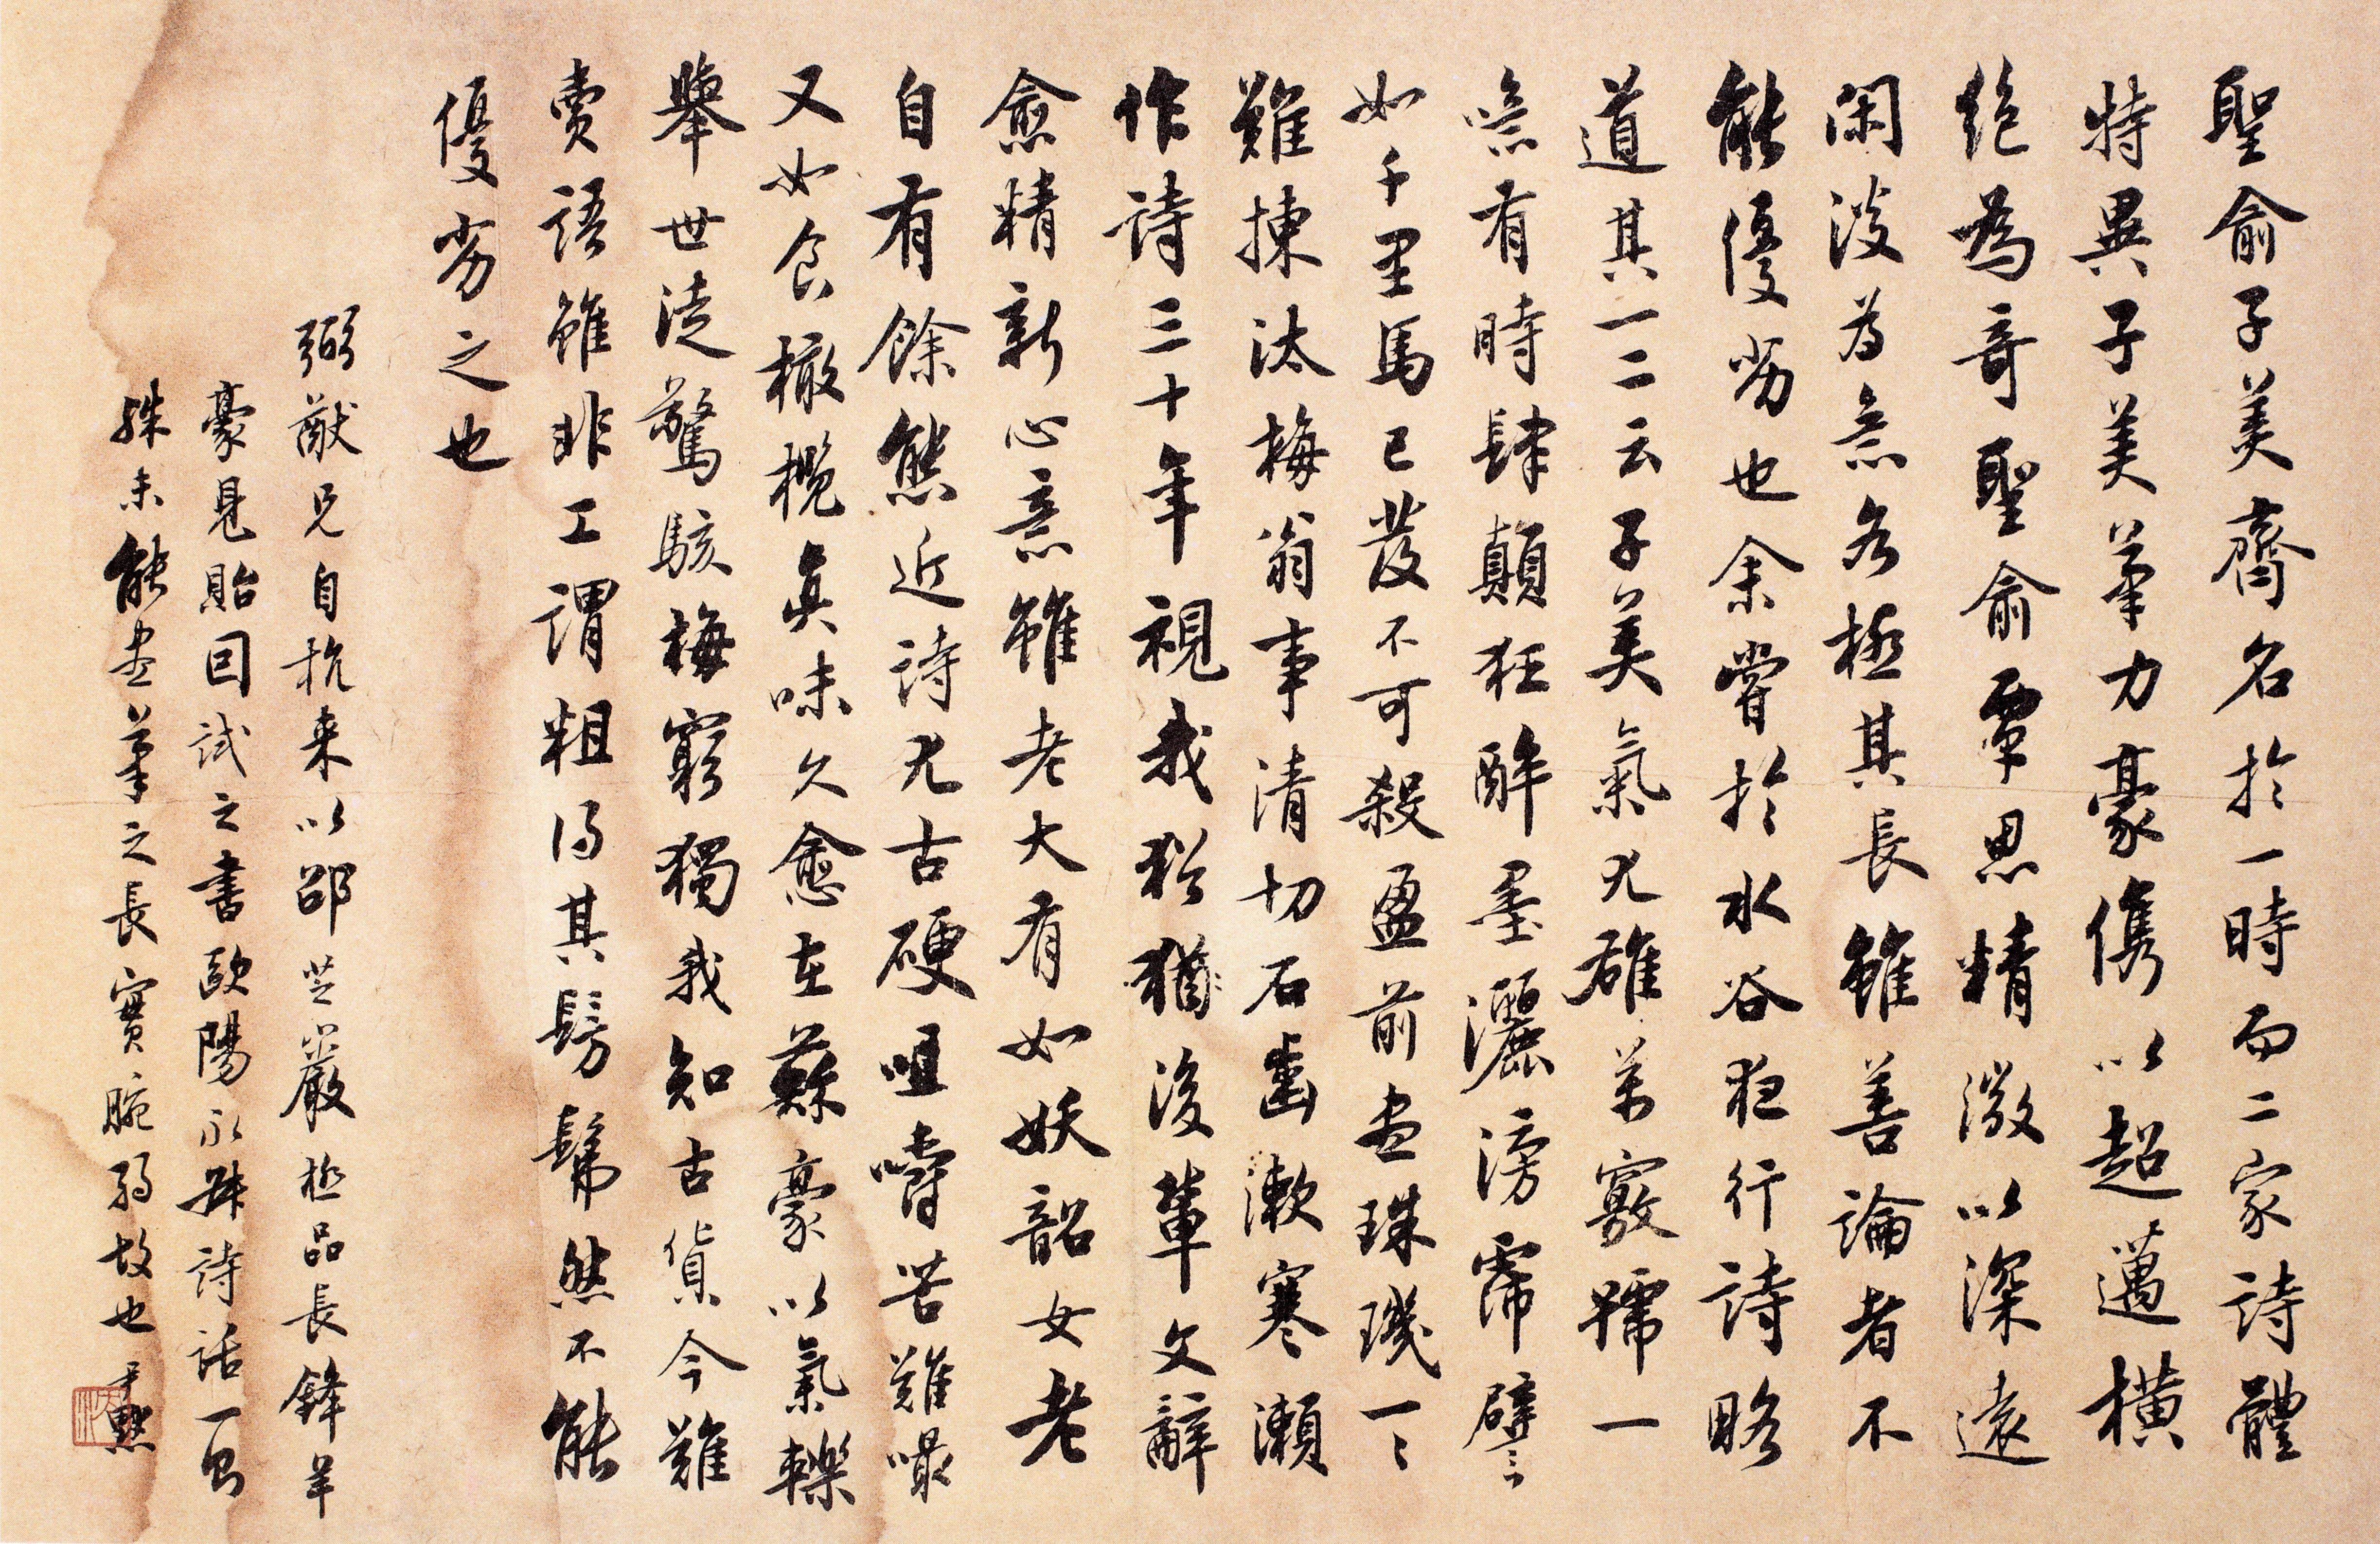 聖俞子美齊名於一時而二家詩體
特異子美筆力豪儁以超邁橫
絕為奇聖俞覃思精微以深遠
閑淡為意各極其長雖善論者不
能優劣也余嘗於水谷夜行詩略
道其一二云子美氣尤雄萬竅號一
噫有時肆顛狂醉墨灑滂霈譬
如千里馬已發不可殺盈前盡珠璣一一
難揀汰梅翁事清切石齒漱寒瀨
作詩三十年視我猶猶後輩文辭
愈精新心意雖老大有如妖韶女老
自有餘態近詩尤古硬咀嚼苦難嘬
又如食橄欖真味久愈在蘇豪以氣轢
舉世徒驚駭梅窮獨我知古貨今難
賣語雖非工謂粗得其髣髴然不能
優劣之也
弼猷兄自杭来以邵芝巖極品長鋒羊
豪見貽因試之書歐陽永叔詩話一節
殊未能盡筆之長實腕弱故也尹默